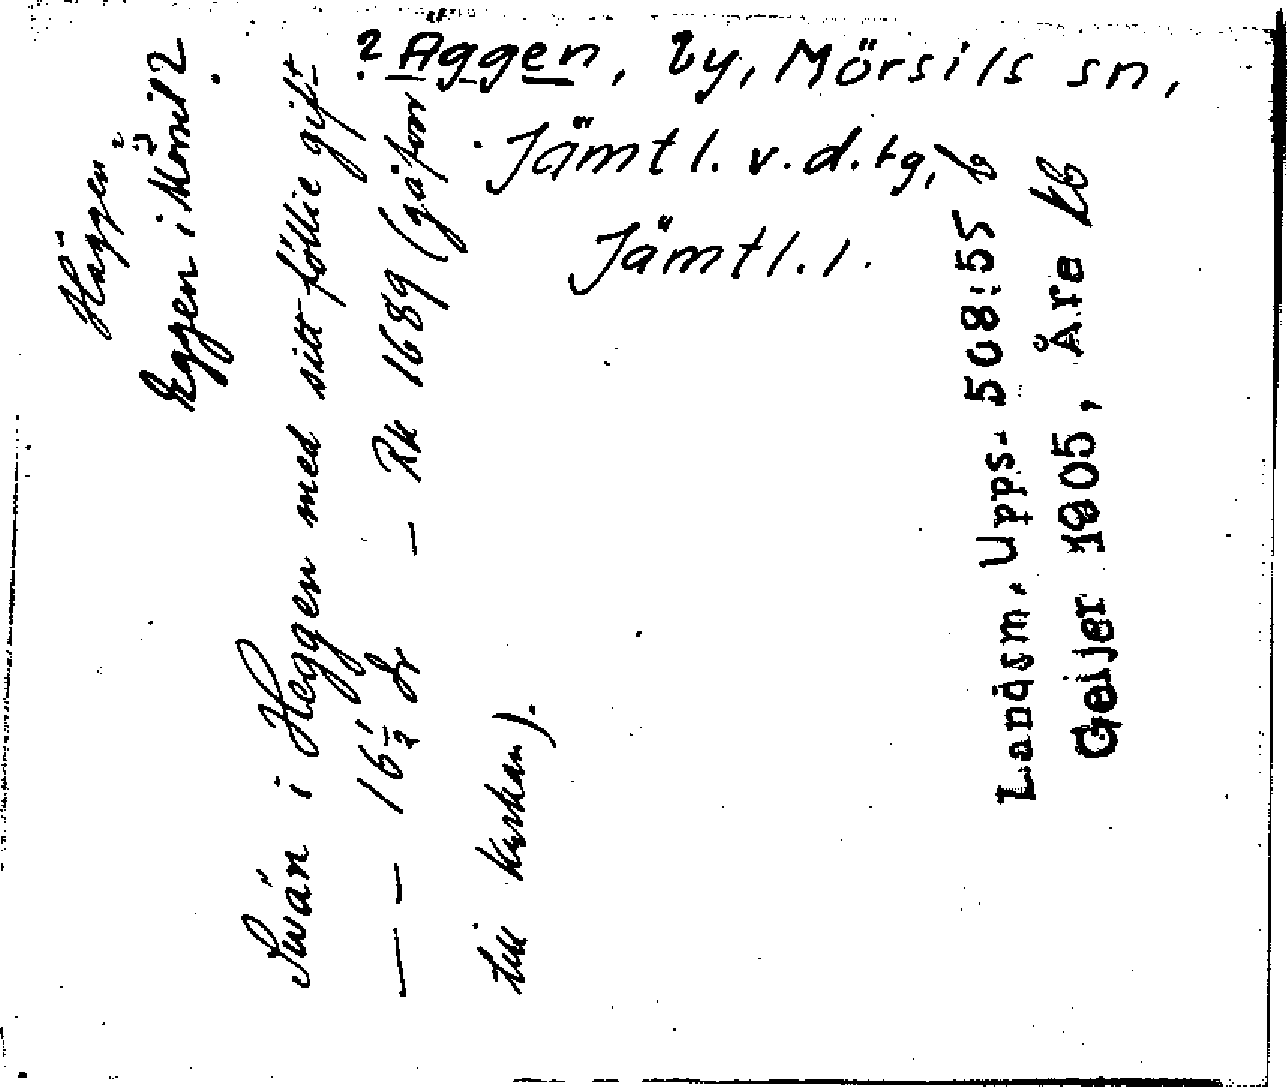 ? Äggen, by, Mörsils sn,
Jämtl. v. d. tg,
Jämtl. l.
Häggen?
Eggen i Mörsil?
Swän i Heggen med sitt föllie gift
— — 16 1/2 — Rk 1689 (gåfvor
till kyrkan).
Landsm. Upps. 508:55 b
Geijer 1905, Åre kb